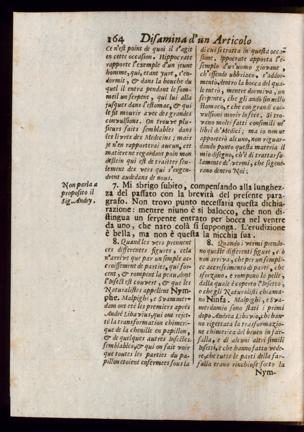 164 Disamina d'un Articolo
Ce n'est point de quoi il s'agit
en cette occasion. Hippocrate
rapporte l'exemple d'un jeune
homme, qui, étant yure, s'en-
dormit, & dans la bouche du
quel il entra pendant le som-
meil un serpent, qui lui alla
jusques dans l'estomac, & qui
le fit mourir avec des grandes
convulsions. On trouve plu-
sieurs faits semblables dans
les livres des Medecins; mais
je n'en rapporterai aucun, cet-
te matiere ne regardant pas mon
dessein qui est de traiter seu-
lement des vers qui s'engen-
drent au dedans de nous.
di cui si tratta in questa occa-
sione. Ippocrate apporta l'e-
sempio d'un uomo giovane,
ch'essendo ubbriaco, s'addor-
mentò, dentro la bocca del qua-
le entrò, mentre dormiva, un
serpente, che gli andò in sullo
stomaco, e che con grandi con-
vulsioni morir lo fece. Si tro-
vano molti fatti consimili ne'
libri de' Medici; ma io non ne
apporterò alcuno, non riguar-
dando punto questa materia il
mio disegno, ch'è di trattar so-
lamente de' vermi, che si gene-
rano dentro noi.
Non parla a
proposito il
Sig. Andry.
7. Mi sbrigo subito, compensando alla lunghez-
za del passato con la brevità del presente para-
grafo. Non trovo punto necessaria questa dichia-
razione: mentre niuno è sì balocco, che non di-
stingua un serpente entrato per bocca nel ventre
da uno, che nato colà si supponga. L'erudizione
è bella, ma non è questa la nicchia sua.
8. Quand les vers prennent
ces differentes figures, cela
n'arrive que par un simple ac-
croissement de parties, qui for-
cent, & rompent la peau, dont
l'insecte est couvert, & que les
Naturalistes appellent Nym-
phe. Malpighi, & Swamer-
dam ont été les premiers après
André Libavius, qui ont rejet-
té la transformation chimeri-
que de la chenille en papillon,
& de quelques autres insectes
semblables, & qui on fait voir
que toutes les parties du pa-
pillon étoient enfermées sous la
8. Quando i vermi prendo-
no queste differenti figure, ciò
non arriva, che per un semplice
accrescimento di parti, che
sforzano, e rompono le pelle,
dalla quale è coperto l'insetto,
e che gli Naturalisti chiama-
no Ninfa. Malpighi, e Swa-
merdamio sono stati i primi
dopo Andrea Libavio, che han-
no rigettata la trasformazione
chimerica del bruco in far-
falla, e di alcuni altri simili
insetti, e che hanno fatto vede-
re, che tutte le parti della far-
falla erano rinchiuse sotto la
Nym-